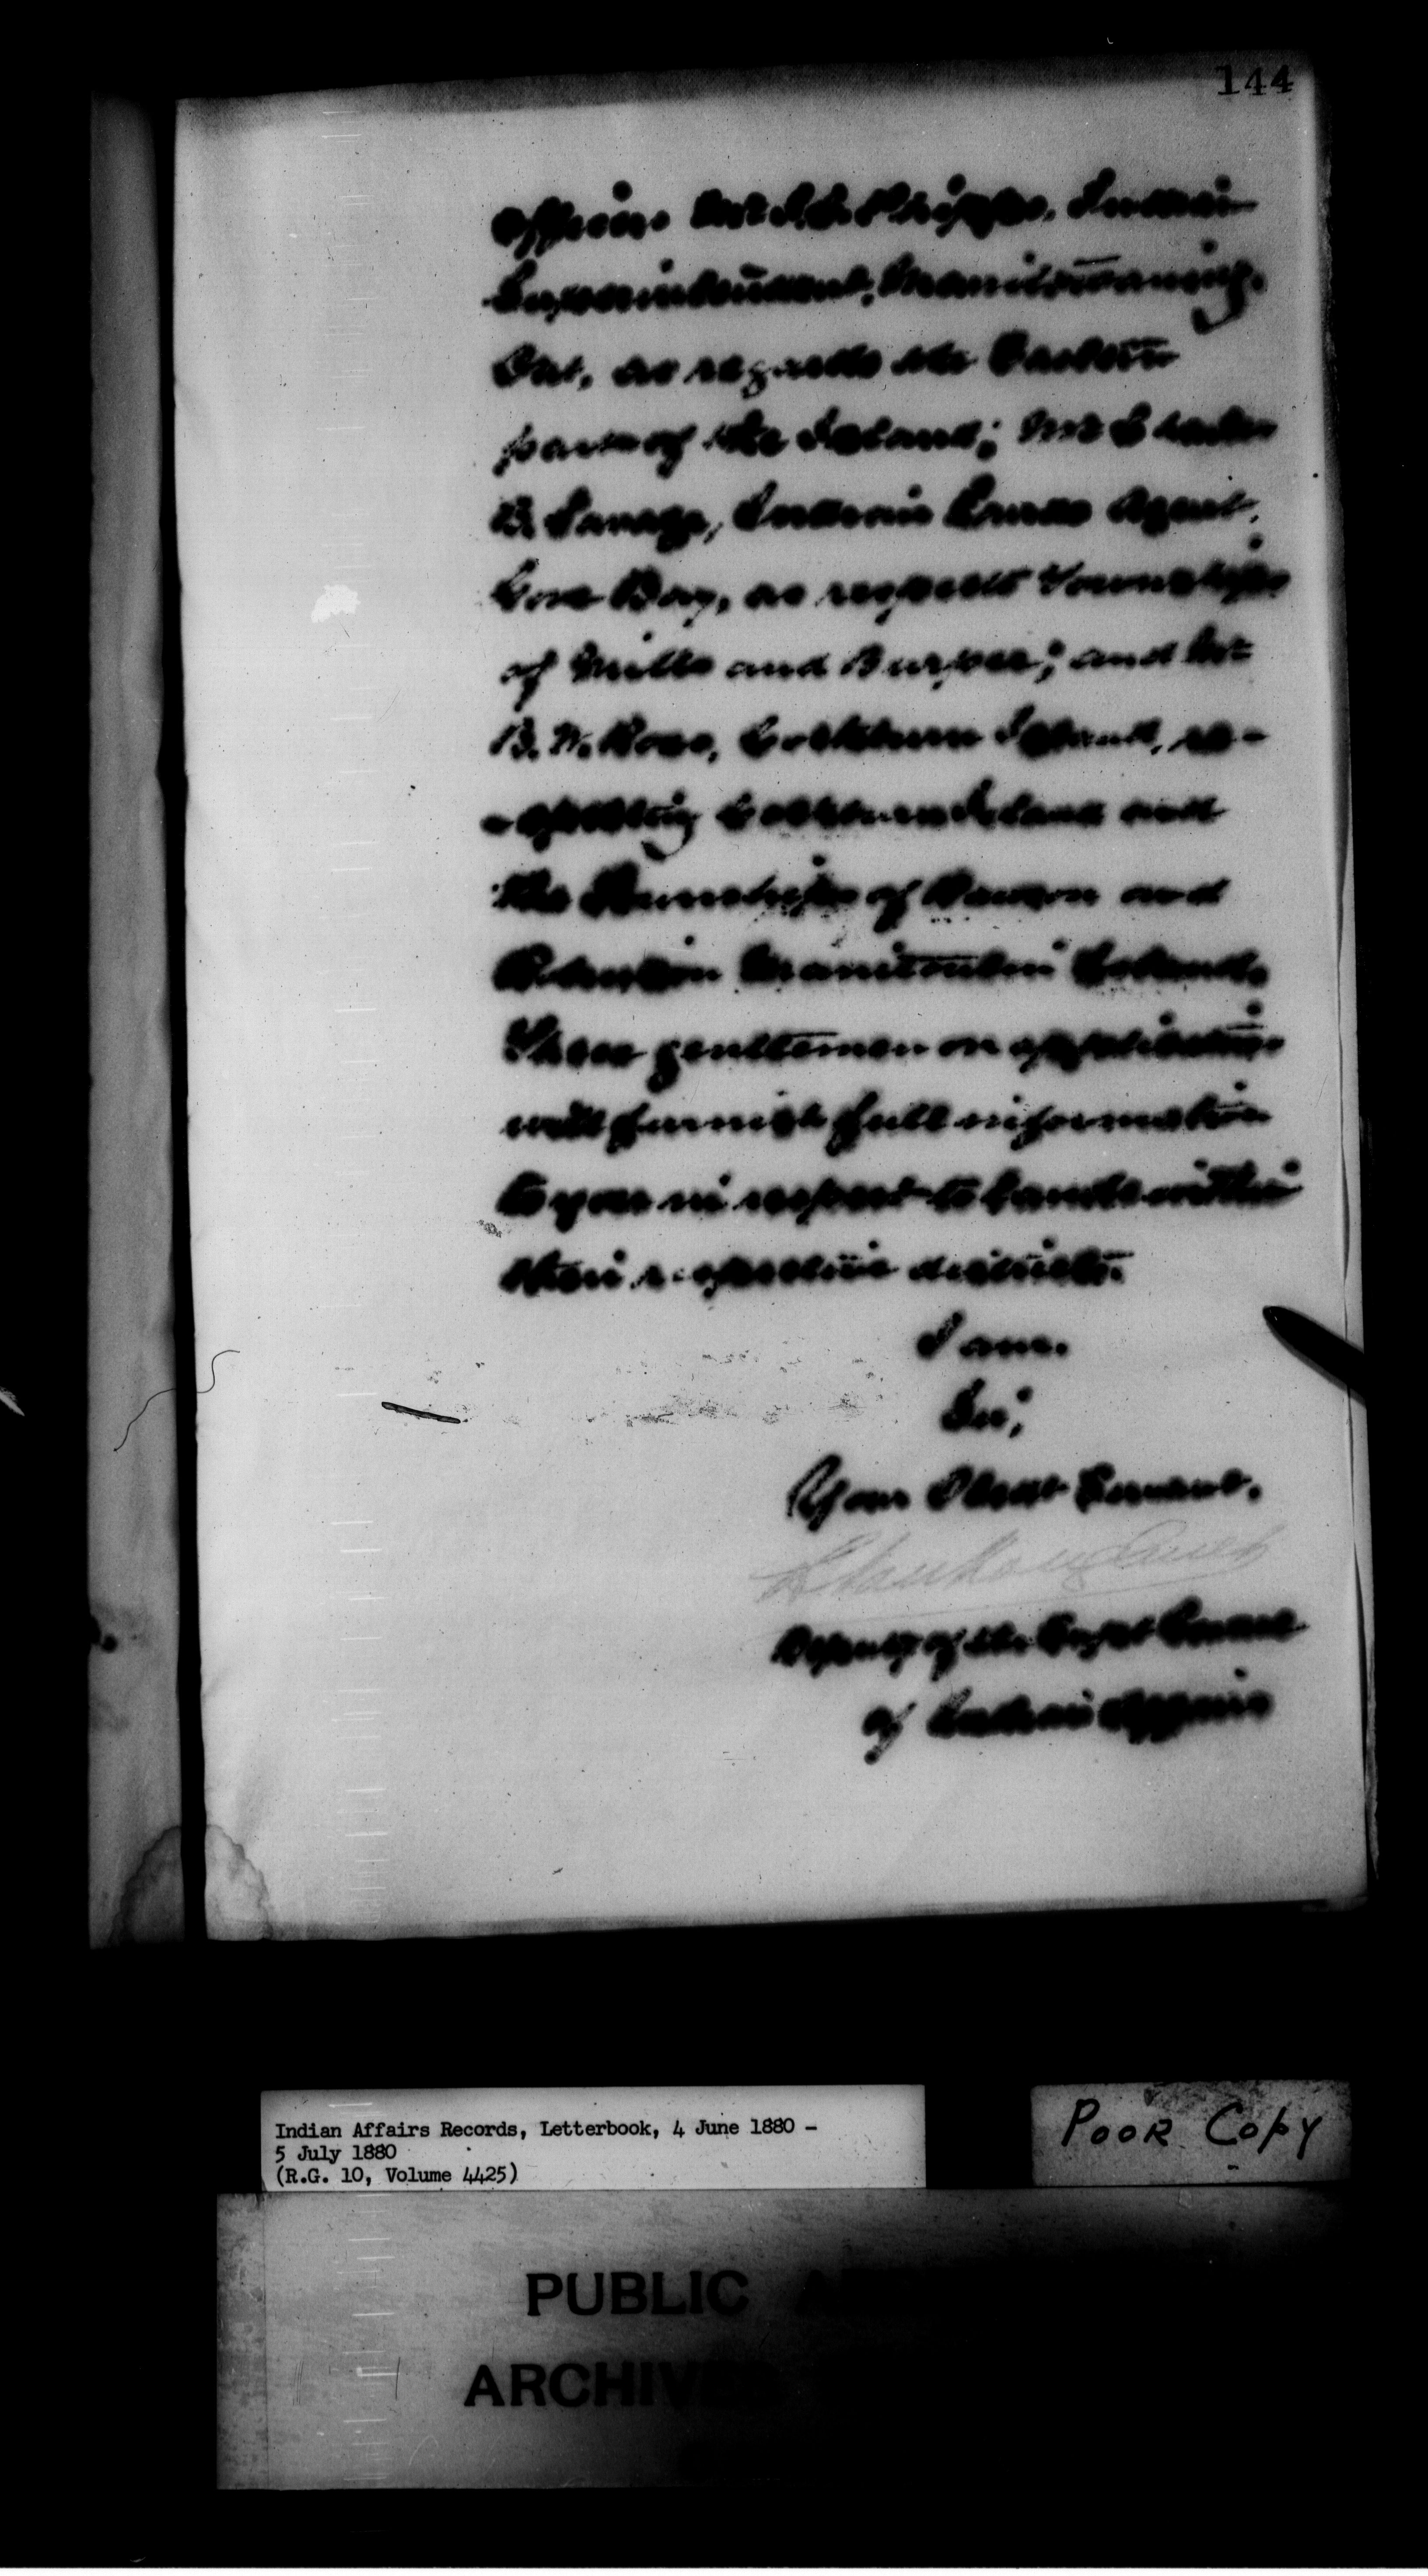 144
Mr J. C. Phipps, Indian
Superintendent, Manitowaning,
Ont, as regards the Eastern
part of the Island; Mr Charles
B. Savage, Indian Lands Agent,
Gore Bay, as respects Townships
of Mills and Burpee; and Mr
B. W. Ross, Cockburn Island, re-
-specting Cockburn Island and
the Townships of Dawson and
Robinson Manitoulin Island.
These gentlemen on application
will furnish full information
to you in respect to lands within
their respective districts.
I am.
Sir,
Your Obedt Servant.
L VanKoughnet
Deputy of the Supt General
of Indian Affairs
Indian Affairs Records, Letterbook, 4 June 1880 -
5 July 1880
(R.G. 10, Volume 4425)
POOR COPY
PUBLIC
ARCHIVES